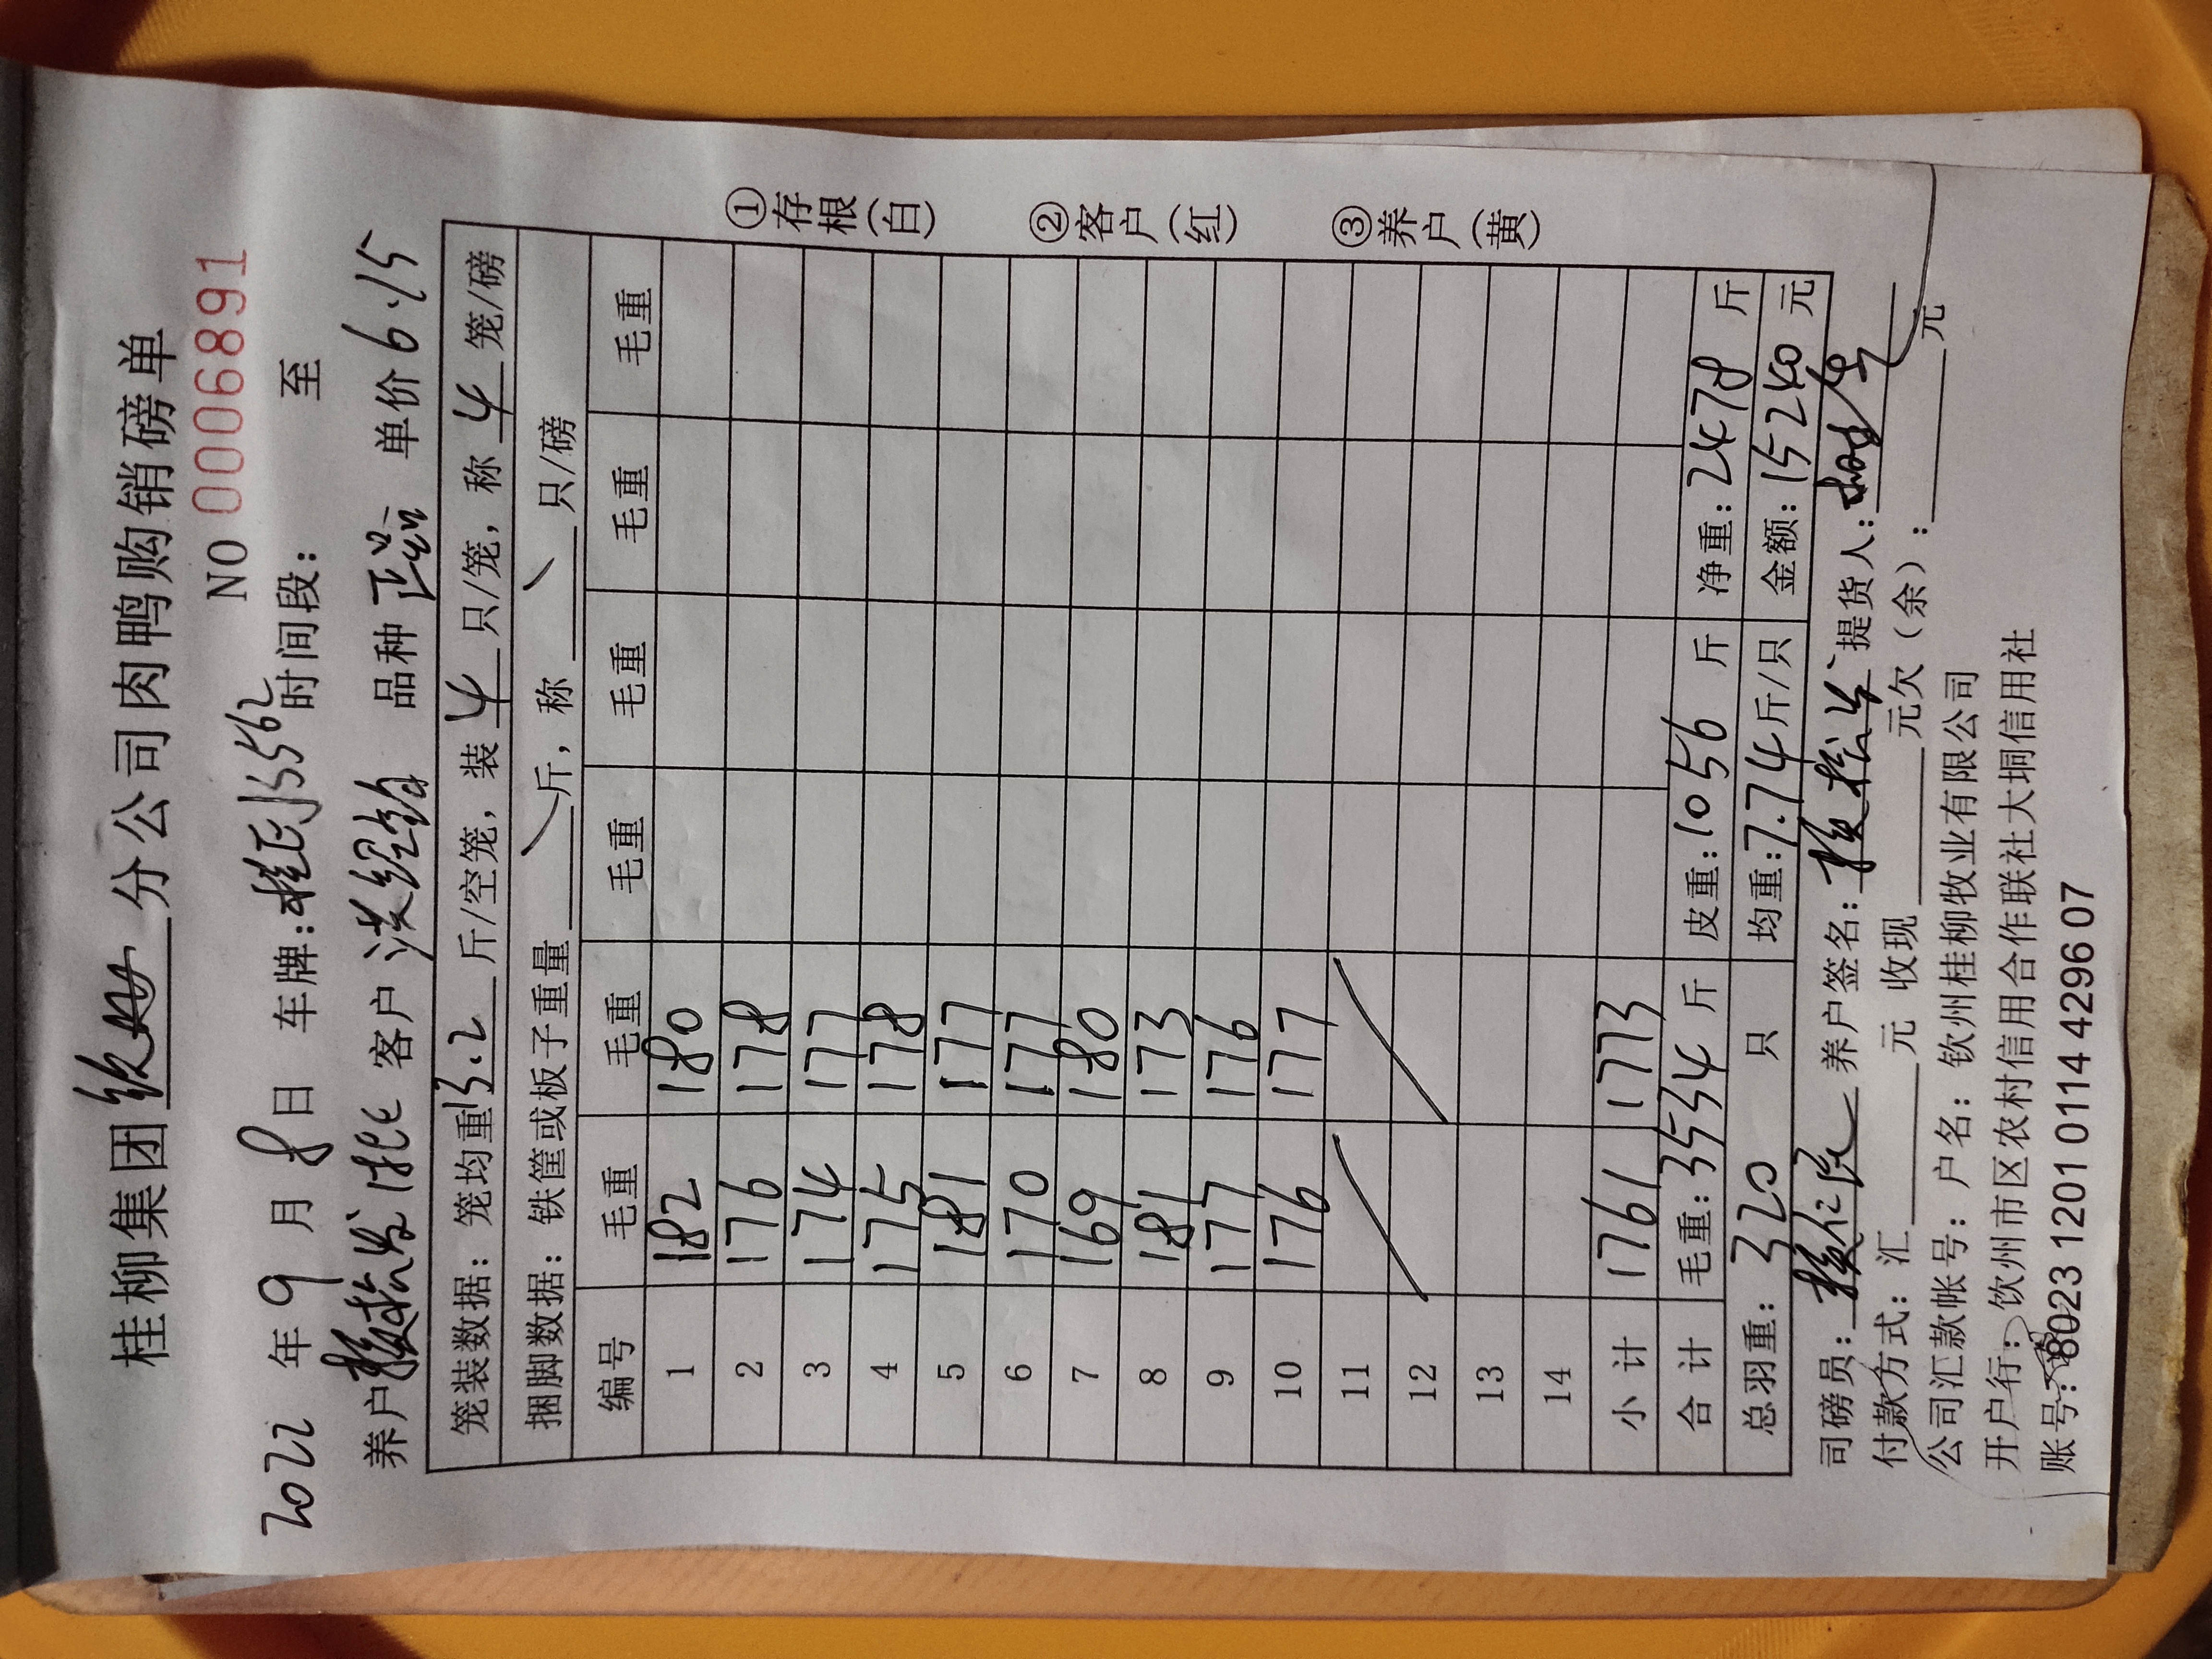 桂柳集团钦州分公司肉鸭购销磅单
NO 0006891
2022 年 9 月 8 日 车牌: 时间段: 至
养户 客户 品种 正品 单价 6.15
笼装数据: 笼均重 13.2 斤/空笼, 装 4 只/笼, 称 4 笼/磅
捆脚数据: 铁筐或板子重量 斤, 称 只/磅
编号 毛重 毛重 毛重 毛重 毛重 毛重
1 182 180
2 176 178
3 174 177
4 175 178
5 181 177
6 170 177
7 169 180
8 181 173
9 177 176
10 176 177
11
12
13
14
小计 1761 1773
合计 毛重: 3534 斤 皮重: 1056 斤 净重: 2478 斤
总羽重: 320 只 均重: 7.74 斤/只 金额: 15240 元
①存根(白)
②客户(红)
③养户(黄)
司磅员: 养户签名: 提货人:
付款方式: 汇 元 收现 元欠(余): 元
公司汇款帐号: 户名: 钦州桂柳牧业有限公司
开户行: 钦州市区农村信用合作联社大垌信用社
账号: 8023 1201 0114 4296 07